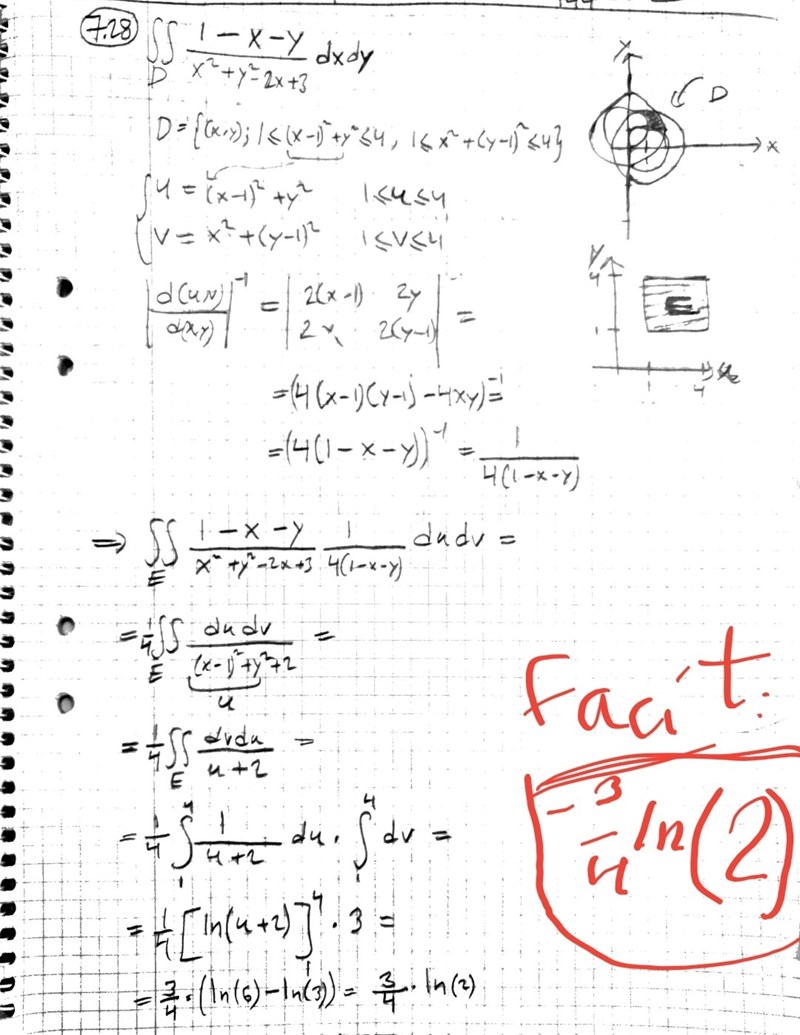 7.28 ∬_D (1-x-y)/(x²+y²-2x+3) dxdy
D={(x,y); 1≤(x-1)²+y²≤4, 1≤x²+(y-1)²≤4}
u=(x-1)²+y² 1≤u≤4
v=x²+(y-1)² 1≤v≤4
y
x
D
|d(u,v)/d(x,y)|⁻¹ = |2(x-1) 2y; 2x 2(y-1)|⁻¹ =
4
E
1
1 4
=(4(x-1)(y-1)-4xy)⁻¹=
=(4(1-x-y))⁻¹= 1/(4(1-x-y))
⇒ ∬_E (1-x-y)/(x²+y²-2x+3) 1/(4(1-x-y)) dudv =
=1/4 ∬_E dudv/((x-1)²+y²+2) =
u
=1/4 ∬_E dvdu/(u+2) =
=1/4 ∫₁⁴ 1/(u+2) du · ∫₁⁴ dv =
=1/4 [ln(u+2)]₁⁴ · 3 =
=3/4 · (ln(6)-ln(3)) = 3/4 · ln(2)
Facit:
-3/4 ln(2)